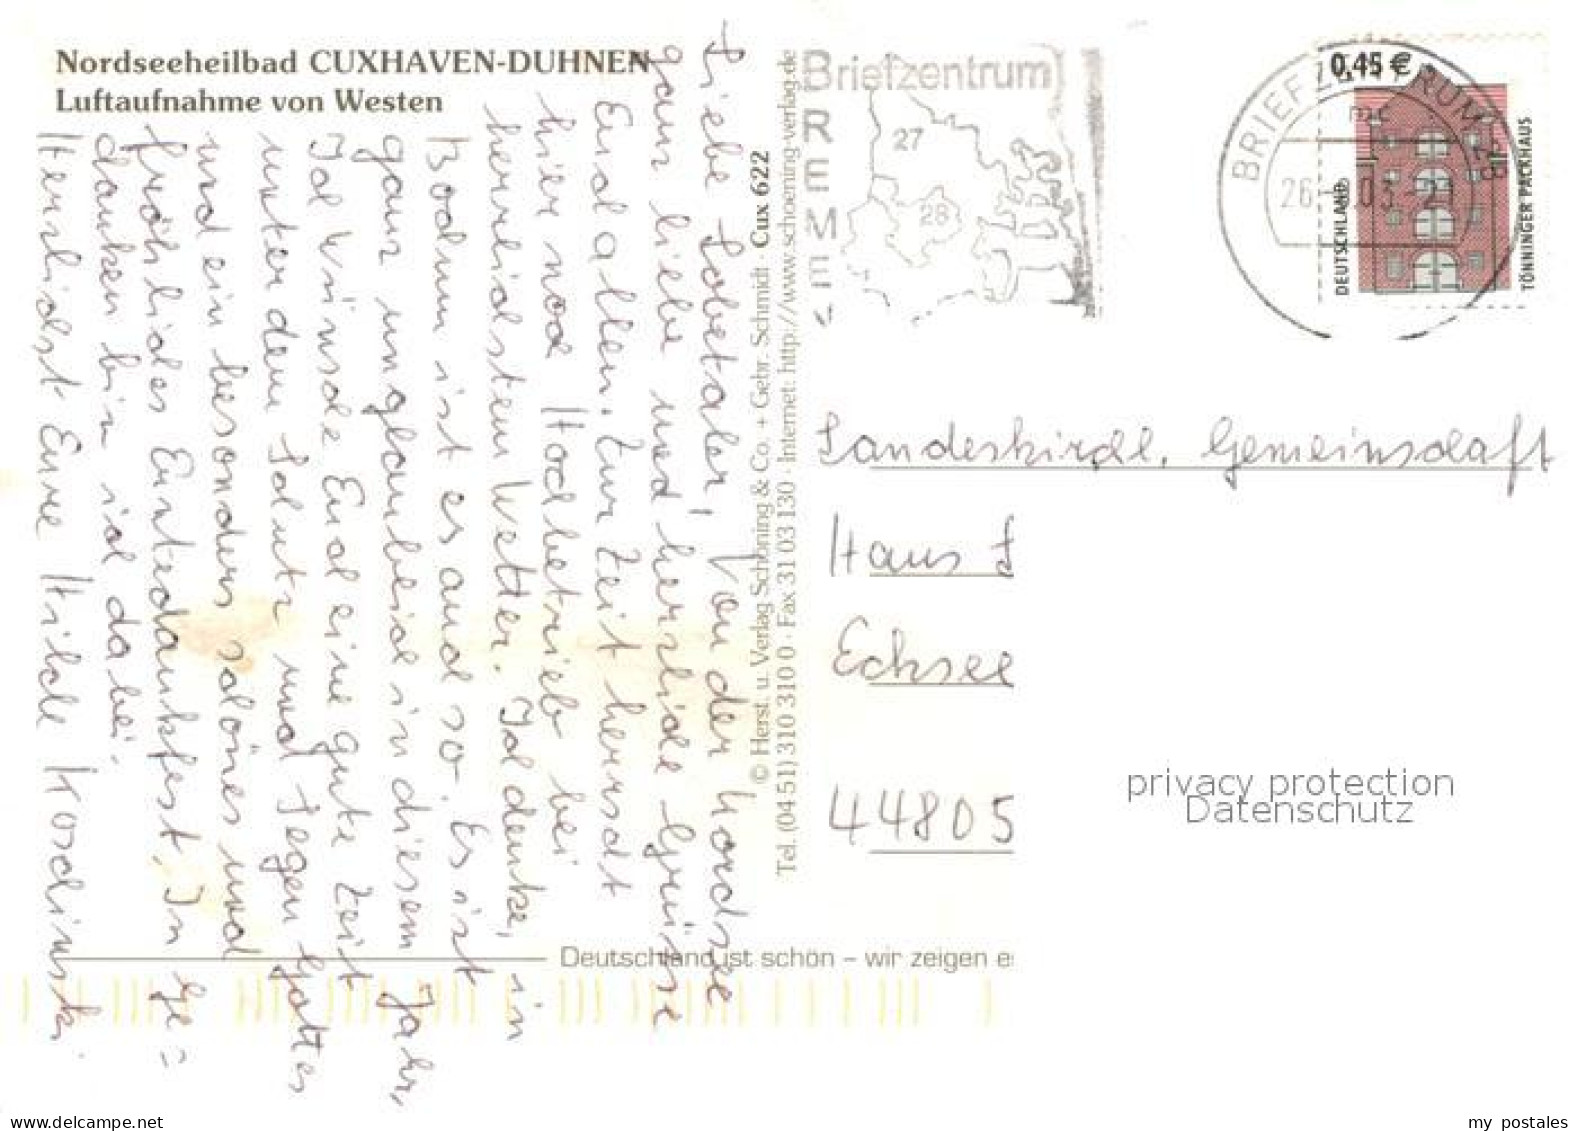 Nordseeheilbad CUXHAVEN-DUHNEN
Luftaufnahme von Westen
Liebe Lobetaler! Von der Nordsee
ganz liebe und herzliche Grüsse
Euch allen. Zur Zeit herrscht
hier noch Hochbetrieb bei
herrlichsten Wetter. Ich denke, in
Bochum ist es auch so. Es ist
ganz unglaublich in diesem Jahr,
Ich wünsche Euch eine gute Zeit
unter dem Schutz und Segen Gottes
und ein besonders schönes und
fröhliches Erntedankfest. In Ge=
danken bin ich dabei.
Herzlichst Eure Hilde
© Herst. u. Verlag Schöning & Co. + Gebr. Schmidt · Cux 622
Tel. (04 51) 310 310 0 · Fax 31 03 130 · Internet: http://www.schoening-verlag.de
Deutschland ist schön – wir zeigen e
Briefzentrum
BREMEN
27
28
BRIEFZENTRUM 28
26 03 - 21
0,45 €
DEUTSCHLAND
TÖNNINGER PACKHAUS
Landeskirchl. Gemeinschaft
Haus
Ecksee
44805
privacy protection
Datenschutz
www.delcampe.net
my_postales